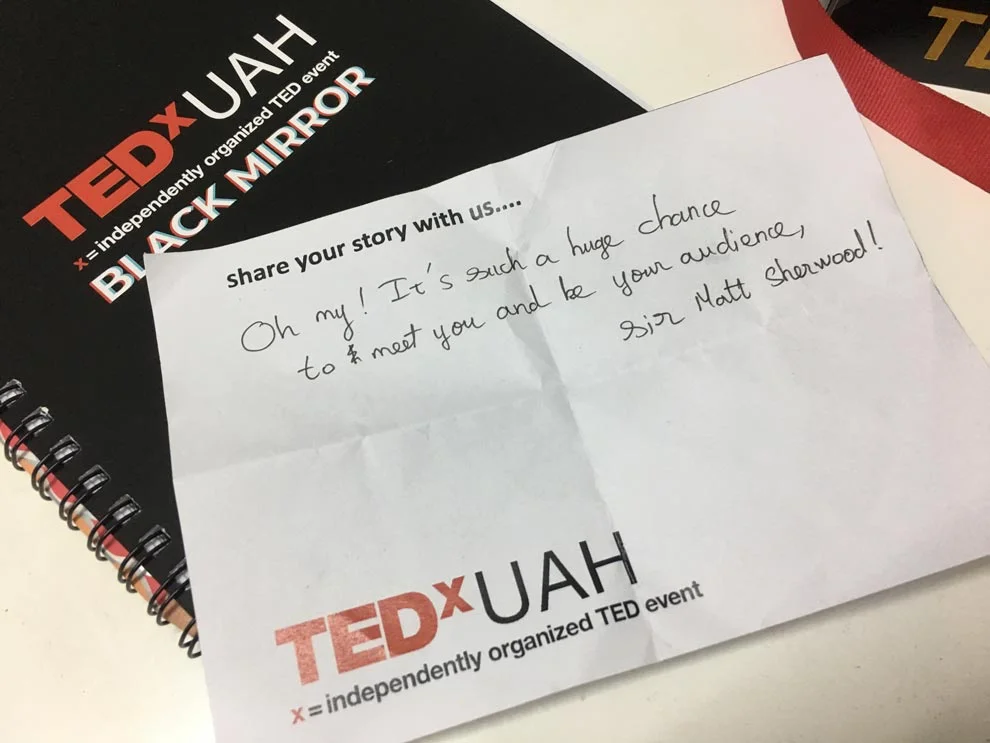 TEDxUAH
x = independently organized TED event
BLACK MIRROR
share your story with us....
Oh my! It's such a huge chance
to meet you and be your audience,
sir Matt Sherwood!
TEDxUAH
x = independently organized TED event